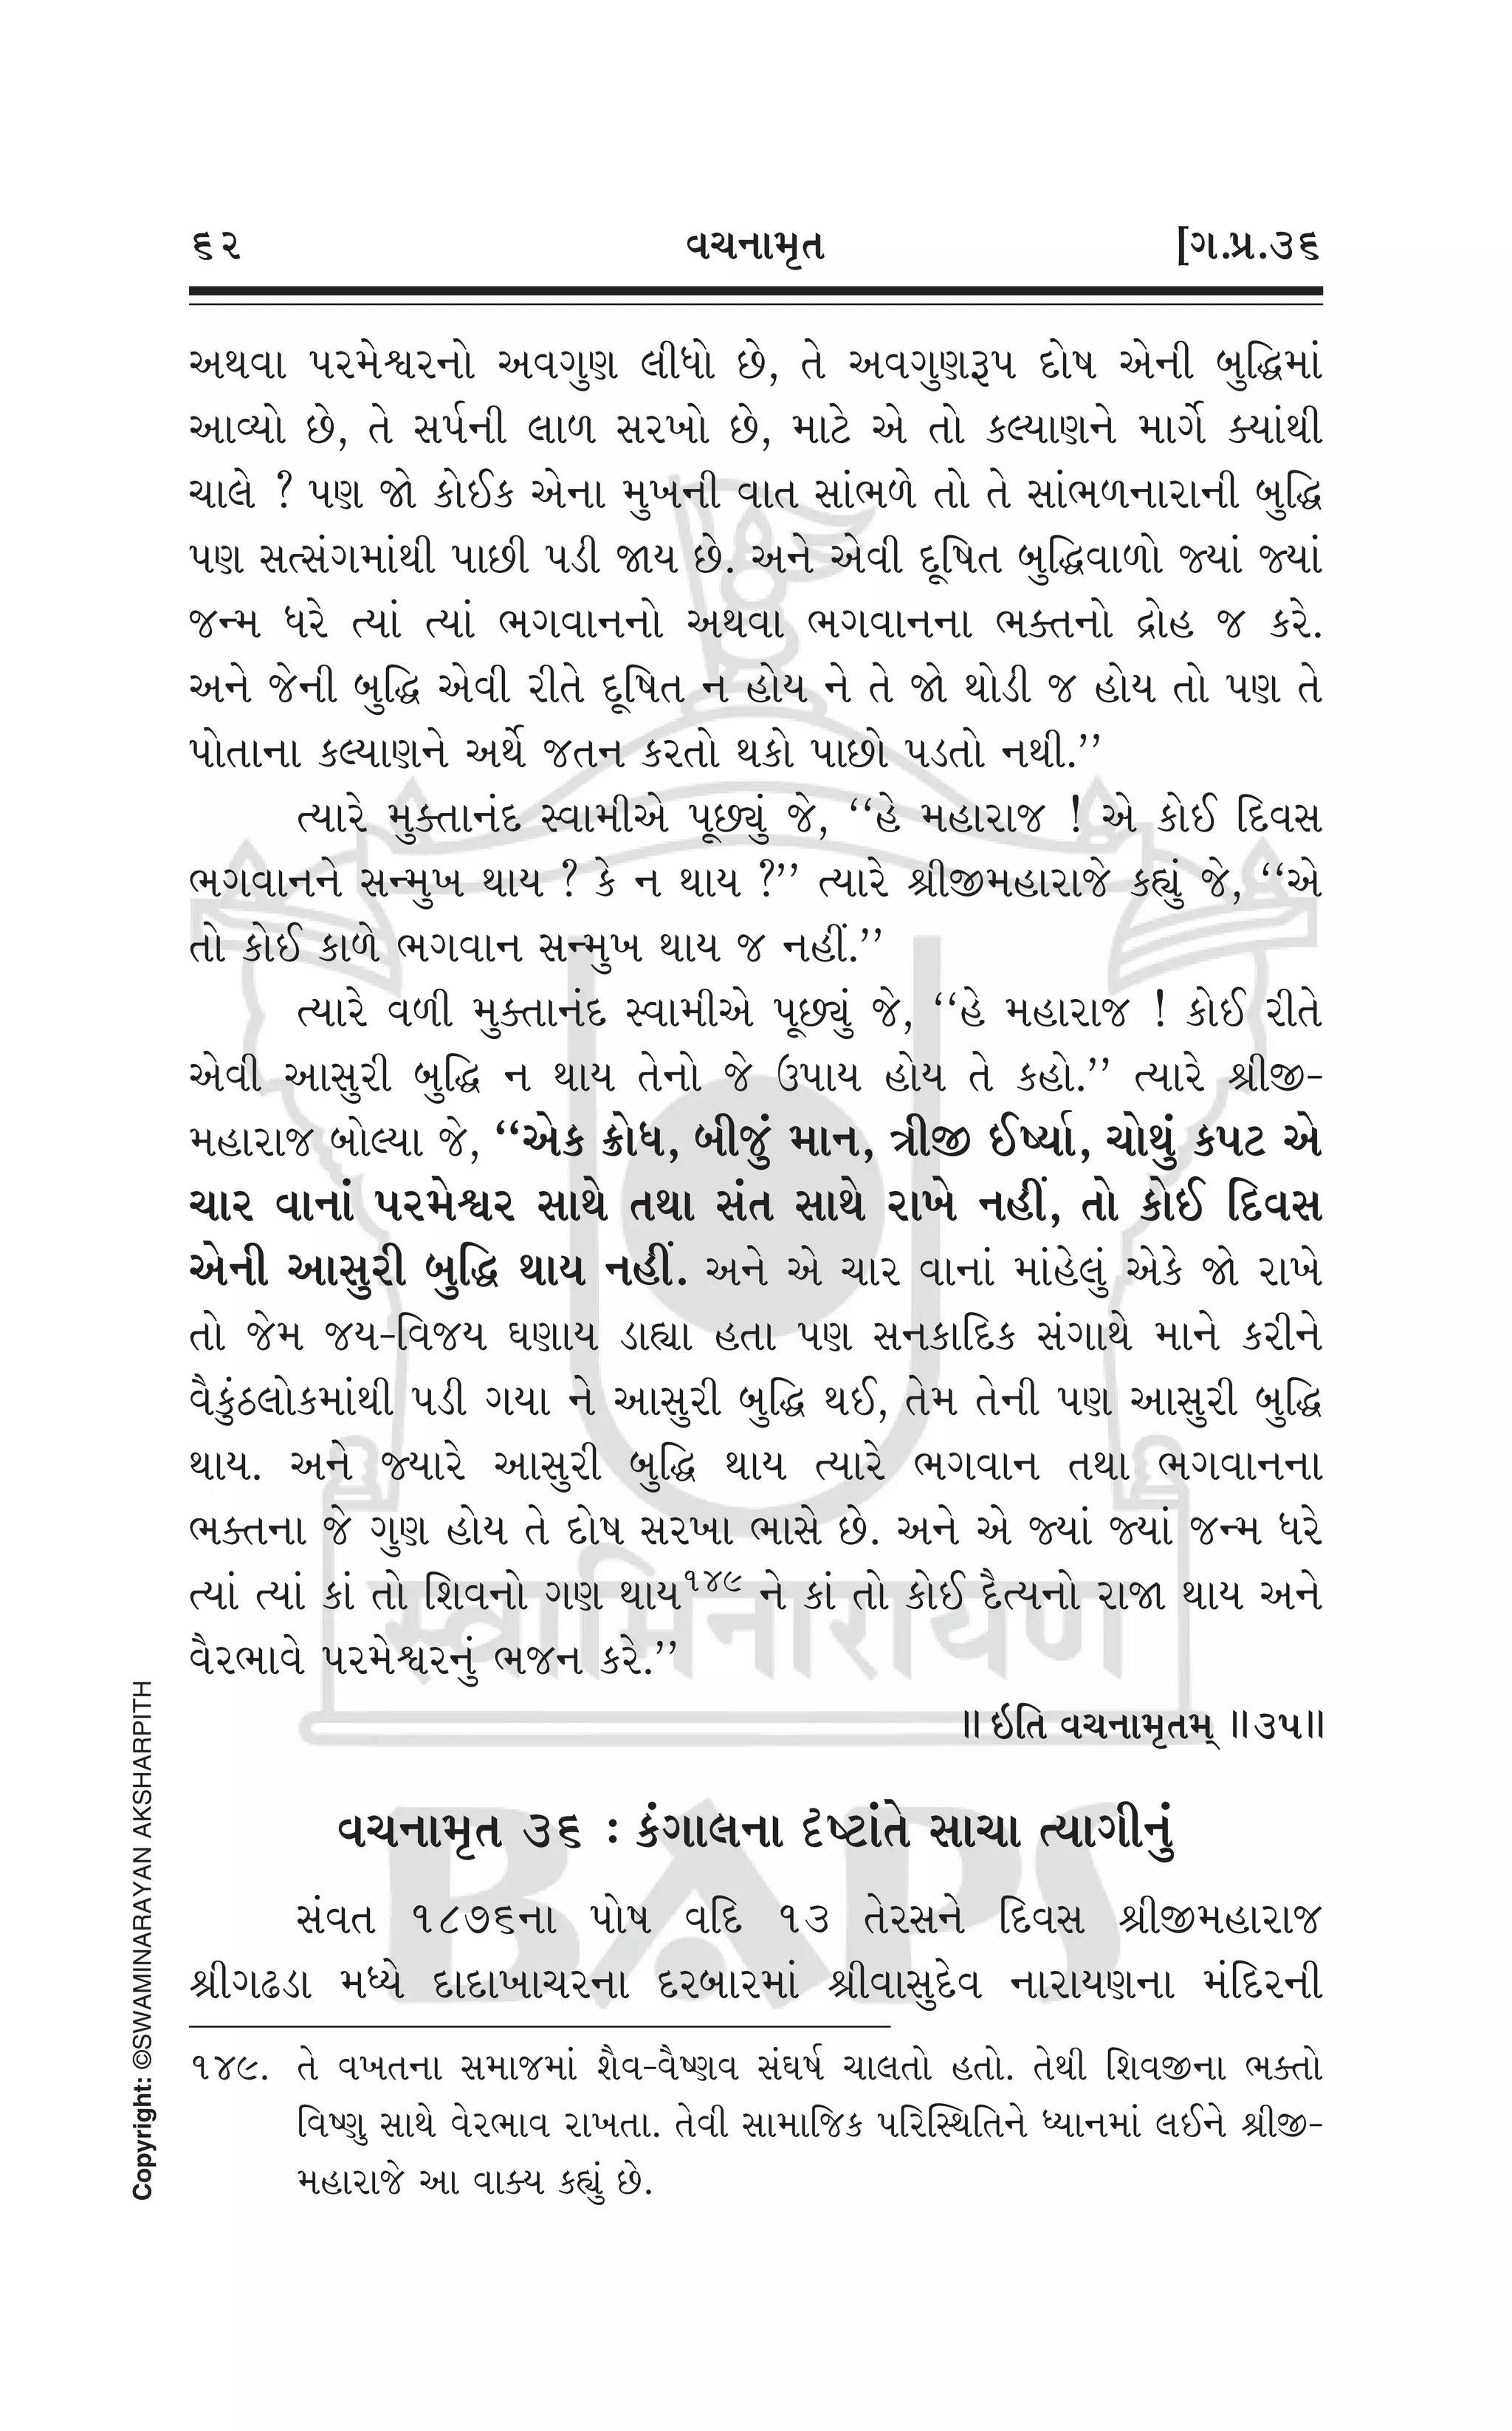 ૬૨ વચનામૃત [ગ.પ્ર.૩૬
અથવા પરમેશ્વરનો અવગુણ લીધો છે, તે અવગુણરૂપ દોષ એની બુદ્ધિમાં
આવ્યો છે, તે સર્પની લાળ સરખો છે, માટે એ તો કલ્યાણને માર્ગે ક્યાંથી
ચાલે ? પણ જો કોઈક એના મુખની વાત સાંભળે તો તે સાંભળનારાની બુદ્ધિ
પણ સત્સંગમાંથી પાછી પડી જાય છે. અને એવી દૂષિત બુદ્ધિવાળો જ્યાં જ્યાં
જન્મ ધરે ત્યાં ત્યાં ભગવાનનો અથવા ભગવાનના ભક્તનો દ્રોહ જ કરે.
અને જેની બુદ્ધિ એવી રીતે દૂષિત ન હોય ને તે જો થોડી જ હોય તો પણ તે
પોતાના કલ્યાણને અર્થે જતન કરતો થકો પાછો પડતો નથી.’’
ત્યારે મુક્તાનંદ સ્વામીએ પૂછ્યું જે, ‘‘હે મહારાજ ! એ કોઈ દિવસ
ભગવાનને સન્મુખ થાય ? કે ન થાય ?’’ ત્યારે શ્રીજીમહારાજે કહ્યું જે, ‘‘એ
તો કોઈ કાળે ભગવાન સન્મુખ થાય જ નહીં.’’
ત્યારે વળી મુક્તાનંદ સ્વામીએ પૂછ્યું જે, ‘‘હે મહારાજ ! કોઈ રીતે
એવી આસુરી બુદ્ધિ ન થાય તેનો જે ઉપાય હોય તે કહો.’’ ત્યારે શ્રીજી-
મહારાજ બોલ્યા જે, ‘‘એક ક્રોધ, બીજું માન, ત્રીજી ઈર્ષ્યા, ચોથું કપટ એ
ચાર વાનાં પરમેશ્વર સાથે તથા સંત સાથે રાખે નહીં, તો કોઈ દિવસ
એની આસુરી બુદ્ધિ થાય નહીં. અને એ ચાર વાનાં માંહેલું એકે જો રાખે
તો જેમ જય-વિજય ઘણાય ડાહ્યા હતા પણ સનકાદિક સંગાથે માને કરીને
વૈકુંઠલોકમાંથી પડી ગયા ને આસુરી બુદ્ધિ થઈ, તેમ તેની પણ આસુરી બુદ્ધિ
થાય. અને જ્યારે આસુરી બુદ્ધિ થાય ત્યારે ભગવાન તથા ભગવાનના
ભક્તના જે ગુણ હોય તે દોષ સરખા ભાસે છે. અને એ જ્યાં જ્યાં જન્મ ધરે
ત્યાં ત્યાં કાં તો શિવનો ગણ થાય૧૪૯ ને કાં તો કોઈ દૈત્યનો રાજા થાય અને
વૈરભાવે પરમેશ્વરનું ભજન કરે.’’
॥ ઇતિ વચનામૃતમ્ ॥૩૫॥
વચનામૃત ૩૬ : કંગાલના દૃષ્ટાંતે સાચા ત્યાગીનું
સંવત ૧૮૭૬ના પોષ વદિ ૧૩ તેરસને દિવસ શ્રીજીમહારાજ
શ્રીગઢડા મધ્યે દાદાખાચરના દરબારમાં શ્રીવાસુદેવ નારાયણના મંદિરની
૧૪૯. તે વખતના સમાજમાં શૈવ-વૈષ્ણવ સંઘર્ષ ચાલતો હતો. તેથી શિવજીના ભક્તો
વિષ્ણુ સાથે વેરભાવ રાખતા. તેવી સામાજિક પરિસ્થિતિને ધ્યાનમાં લઈને શ્રીજી-
મહારાજે આ વાક્ય કહ્યું છે.
Copyright: ©SWAMINARAYAN AKSHARPITH
स्वामिनारायण
BAPS